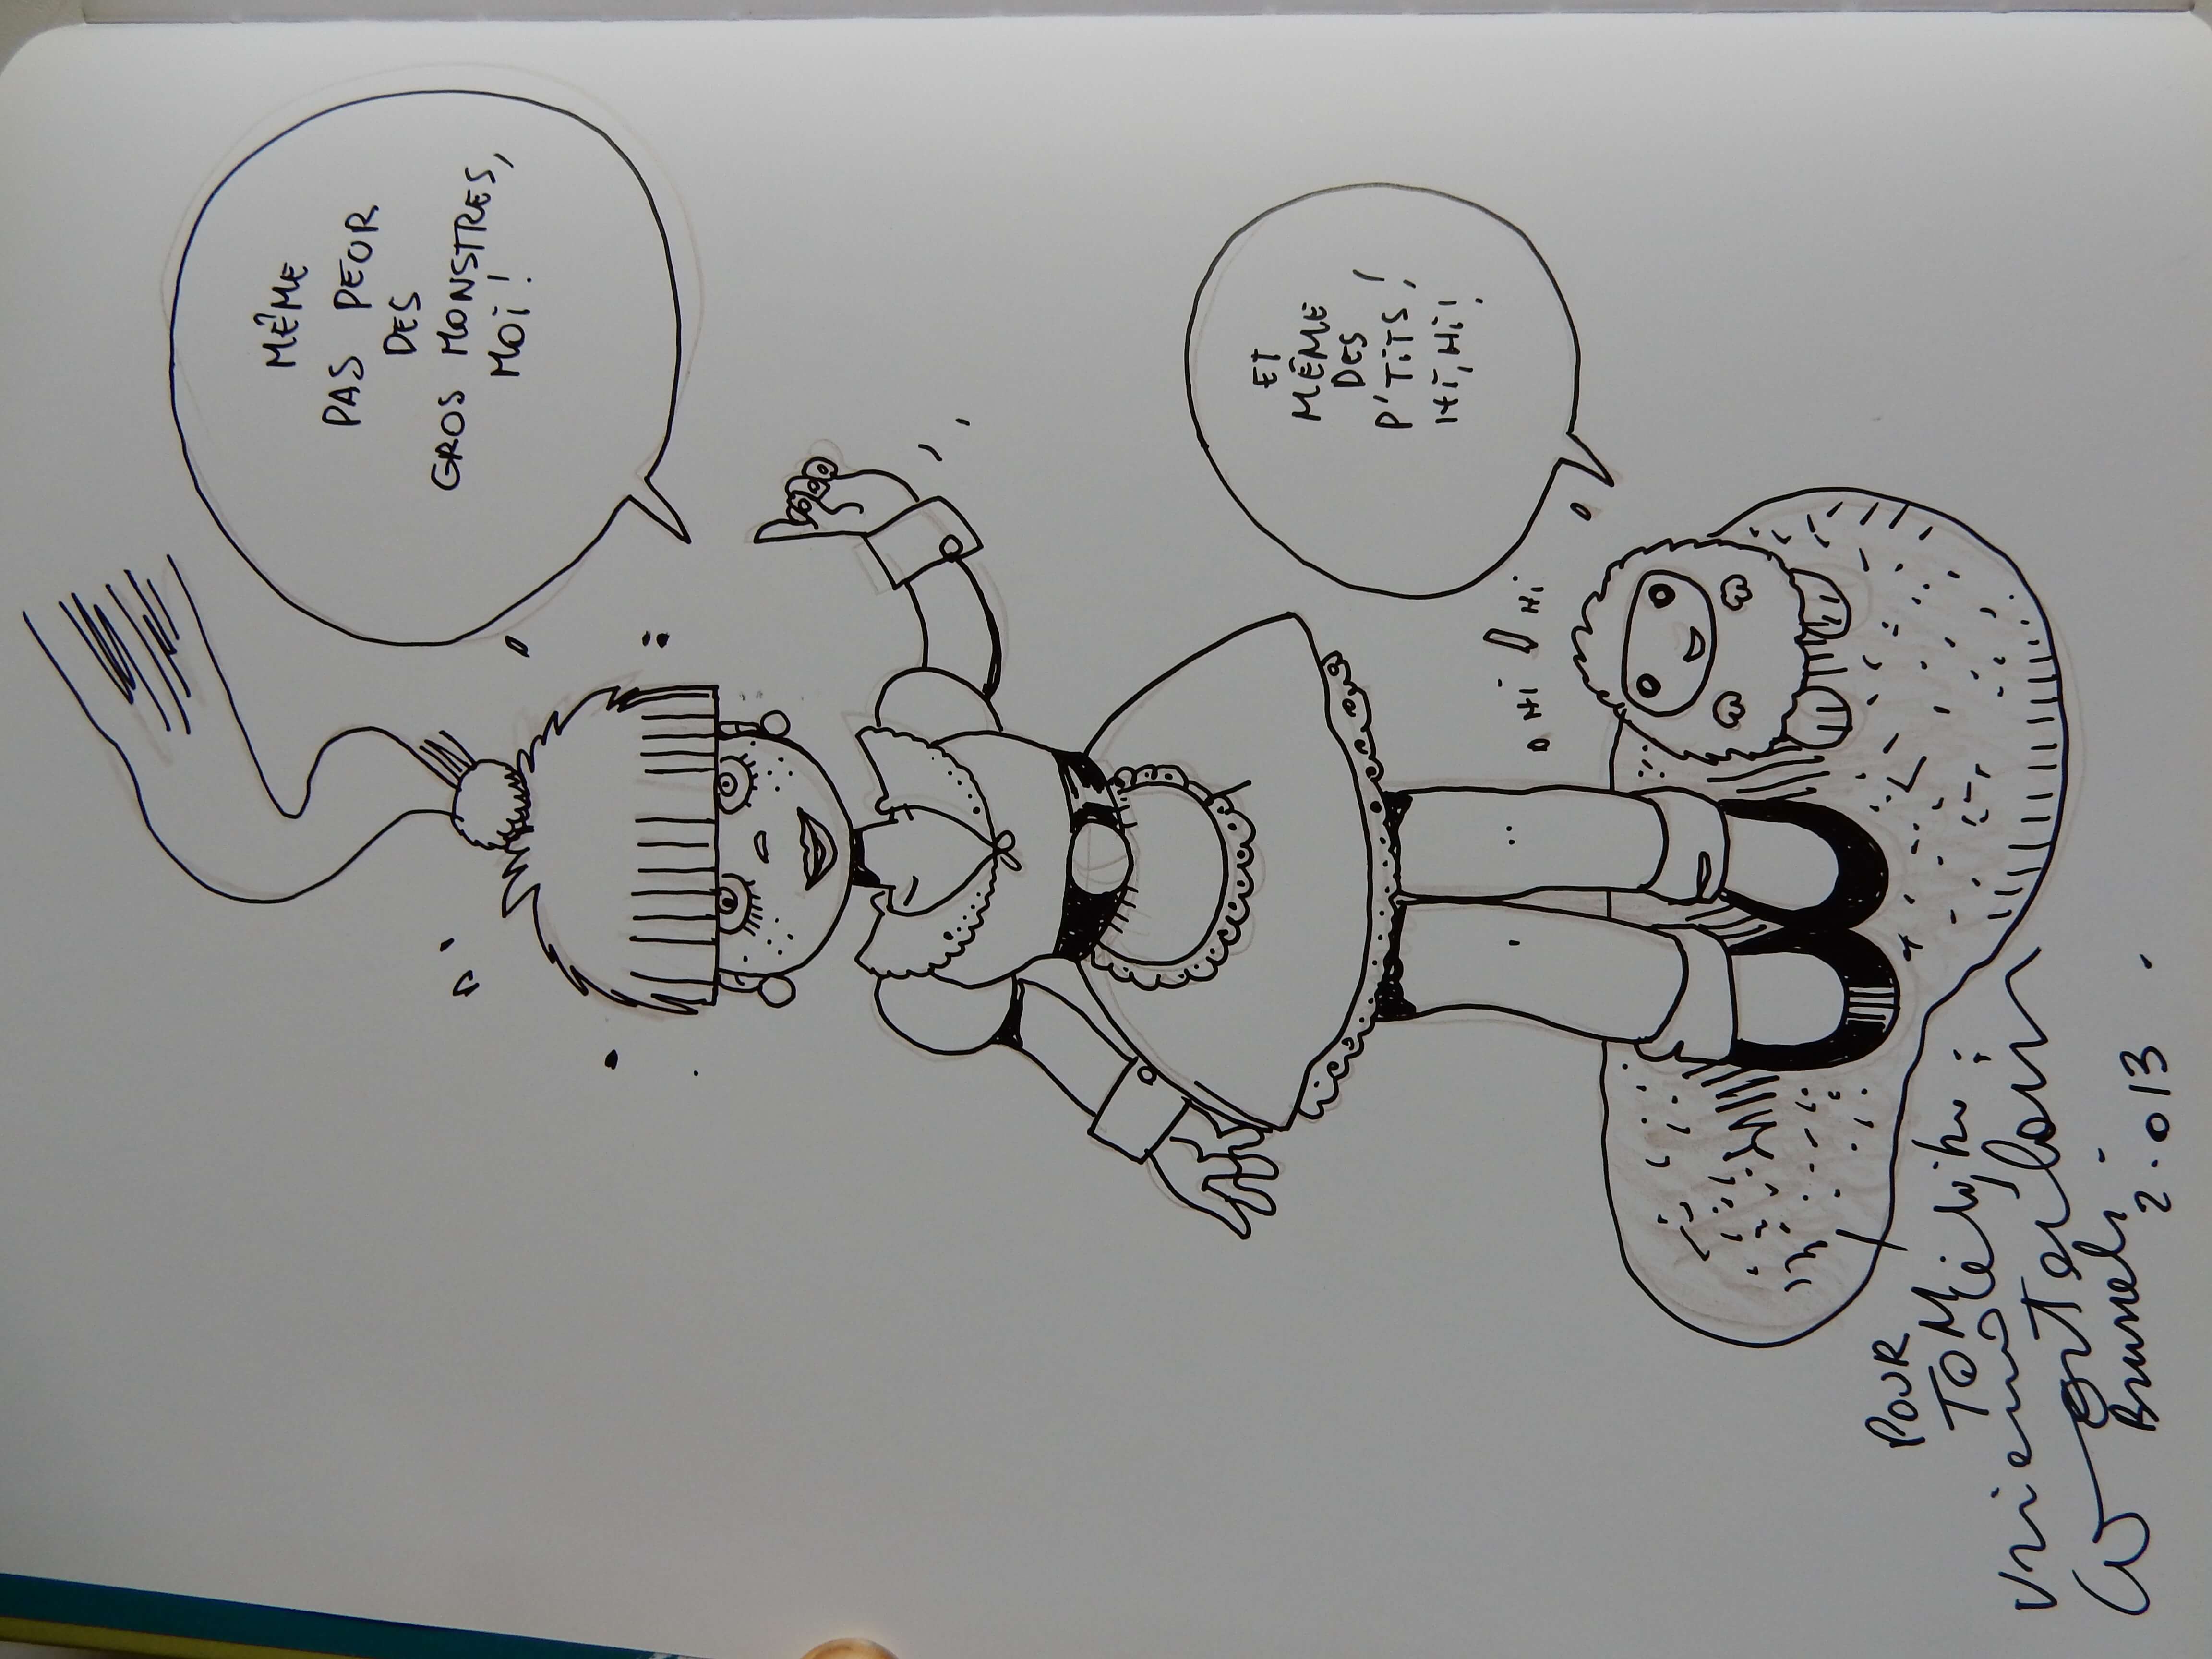 MÊME
PAS PEUR
DES
GROS MONSTRES,
MOI !
ET
MÊME
DES
P'TITS !
HI, HI !
HI ! HI
POUR
TOM
Vriendelijke
Brussels
2.013